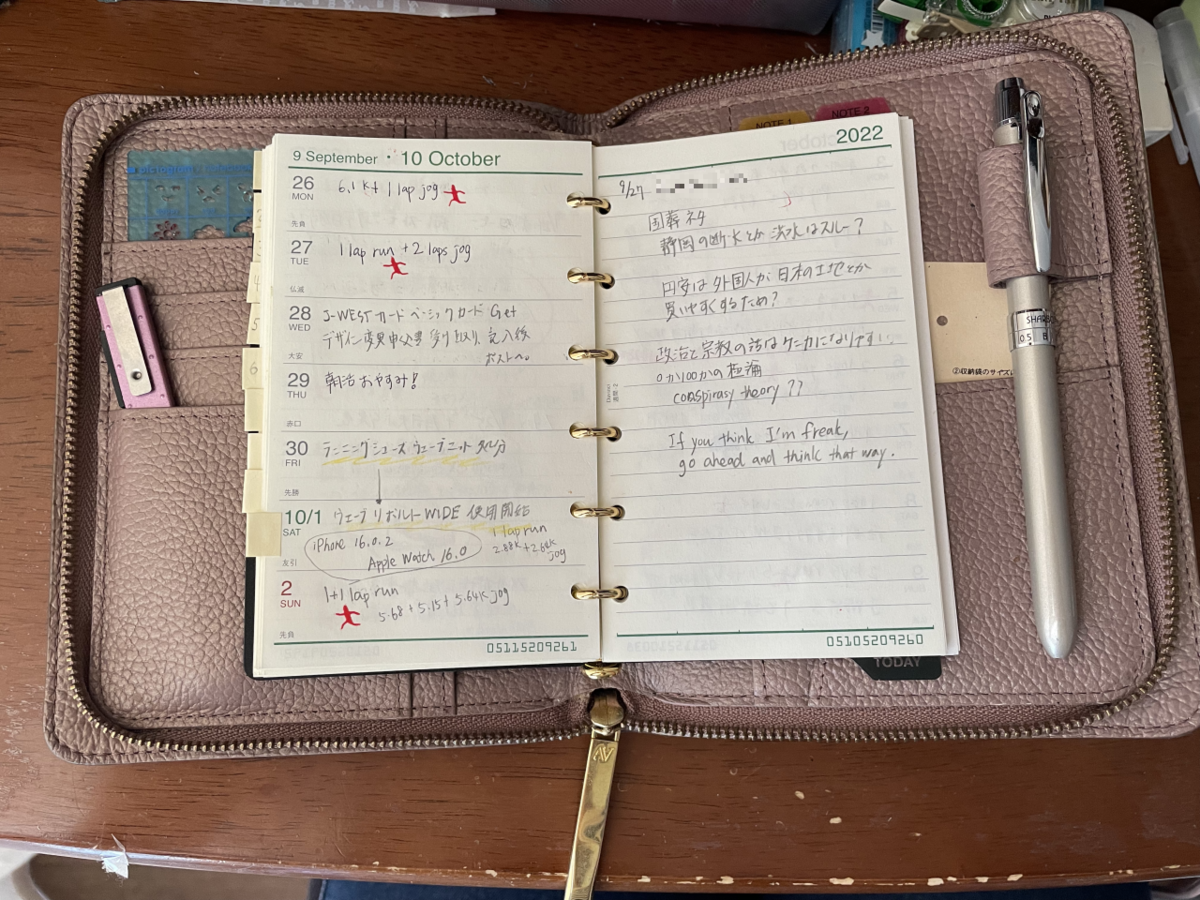 9 September・10 October
26
MON
先負
6.1k + 1 lap jog
27
TUE
仏滅
1 lap run + 2 laps jog
28
WED
大安
J-WESTカード ベーシックカード Get
デザイン変更申込書 受け取り、記入後
ポストへ。
29
THU
赤口
朝活おやすみ!
30
FRI
先勝
ランニングシューズ ウェーブニット 処分
10/1
SAT
友引
ウェーブリボルト WIDE 使用開始
iPhone 16.0.2
Apple Watch 16.0
1 lap run
2.88k + 2.68k
jog
2
SUN
先負
1+1 lap run
5.68 + 5.15 + 5.64k jog
05115209261
NOTE 1
NOTE 2
2022
9/27
国葬ネタ
静岡の断水とか洪水はスルー?
円安は外国人が日本の土地とか
買いやすくするため?
政治と宗教の話はケンカになりやすい。
0か100かの極論
conspirasy theory ??
If you think I'm freak,
go ahead and think that way.
05105209260
TODAY
②収納袋のサイズに
SHARB
0.5